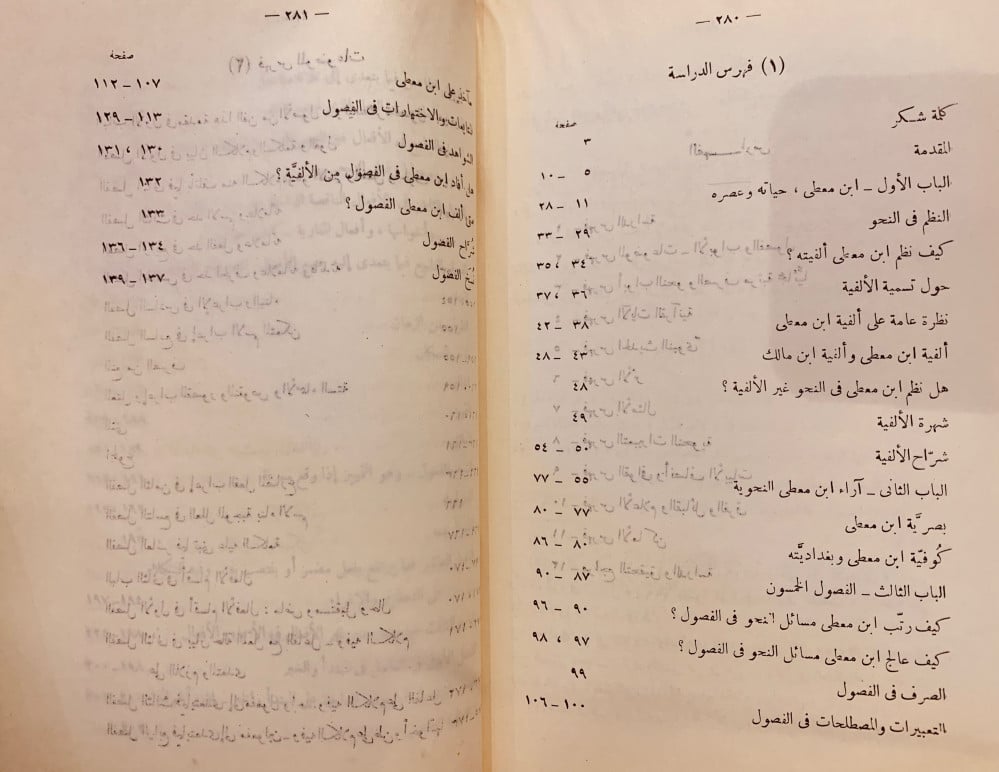 — ٢٨٠ —
(١) فهرس الدراسة
صفحة
كلمة شكر ٣
المقدمة ٥ – ١٠
الباب الأول – ابن معطى ، حياته وعصره ١١ – ٢٨
النظم فى النحو ٢٩ – ٣٣
كيف نظم ابن معطى ألفيته؟ ٣٤ ، ٣٥
حول تسمية الألفية ٣٦ ، ٣٧
نظرة عامة على ألفية ابن معطى ٣٨ – ٤٢
ألفية ابن معطى وألفية ابن مالك ٤٣ – ٤٨
هل نظم ابن معطى فى النحو غير الألفية ؟ ٤٨
شهرة الألفية ٤٩
شرّاح الألفية ٥٠ – ٥٤
الباب الثانى – آراء ابن معطى النحوية ٥٥ – ٧٧
بصريَّة ابن معطى ٧٧ – ٨٠
كُوفيّة ابن معطى وبغداديَّته ٨٠ – ٨٦
الباب الثالث – الفصول الخمسون ٨٧ – ٩٠
كيف رتّب ابن معطى مسائل النحو فى الفصول ؟ ٩٠ – ٩٦
كيف عالج ابن معطى مسائل النحو فى الفصول ؟ ٩٧ ، ٩٨
الصرف فى الفصول ٩٩
التعبيرات والمصطلحات فى الفصول ١٠٠ – ١٠٦
— ٢٨١ —
صفحة
مآخذ على ابن معطى ١٠٧ – ١١٢
والاختيارات فى الفصول ١١٣ – ١٢٩
الشواهد فى الفصول ١٣٠ ، ١٣١
هل أفاد ابن معطى فى الفصول من الألفيَّة ؟ ١٣٢
متى ألف ابن معطى الفصول ؟ ١٣٣
شُرّاح الفصول ١٣٤ – ١٣٦
نسخ الفصول ١٣٧ – ١٣٩